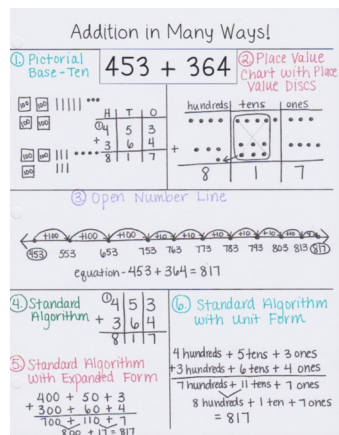 Addition in Many Ways!
① Pictorial
Base-Ten
453 + 364
② Place Value
Chart with Place
Value DISCS
100 100
100 100
100 100
100
H T O
① 4 5 3
+ 3 6 4
8 1 7
hundreds tens ones
+
8 1 7
③ Open Number Line
+100 +100 +100 +10 +10 +10 +10 +10 +10
453 553 653 753 763 773 783 793 803 813 817
equation - 453 + 364 = 817
④ Standard
Algorithm
① 4 5 3
+ 3 6 4
8 1 7
⑤ Standard Algorithm
with Expanded Form
400 + 50 + 3
+ 300 + 60 + 4
700 + 110 + 7
800 + 17 = 817
⑥ Standard Algorithm
with Unit Form
4 hundreds + 5 tens + 3 ones
+3 hundreds + 6 tens + 4 ones
7 hundreds + 11 tens + 7 ones
8 hundreds + 1 ten + 7 ones
= 817